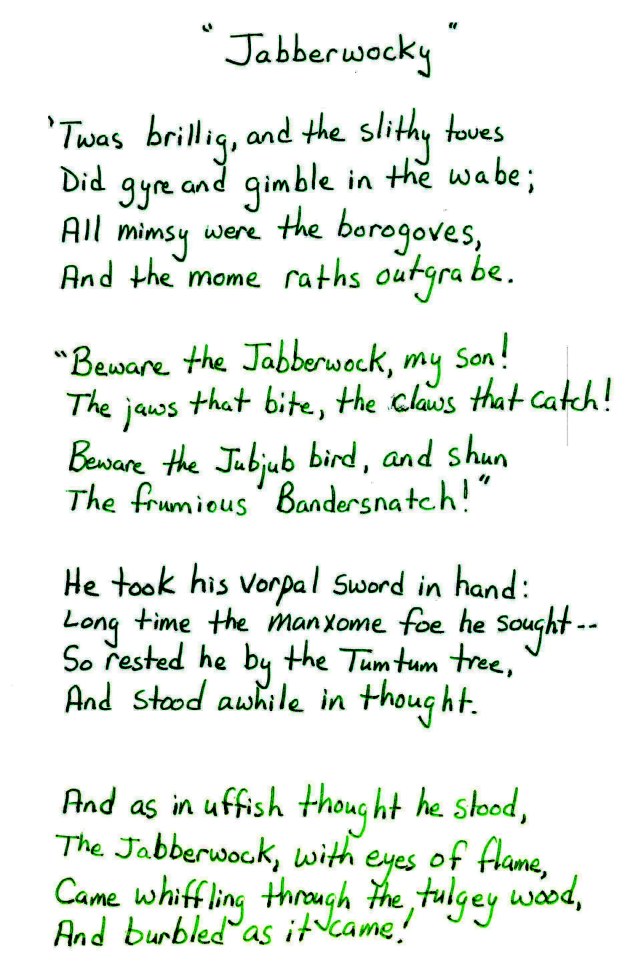 "Jabberwocky"
'Twas brillig, and the slithy toves
Did gyre and gimble in the wabe;
All mimsy were the borogoves,
And the mome raths outgrabe.
"Beware the Jabberwock, my son!
The jaws that bite, the claws that catch!
Beware the Jubjub bird, and shun
The frumious Bandersnatch!"
He took his vorpal sword in hand:
Long time the manxome foe he sought--
So rested he by the Tumtum tree,
And stood awhile in thought.
And as in uffish thought he stood,
The Jabberwock, with eyes of flame,
Came whiffling through the tulgey wood,
And burbled as it came!